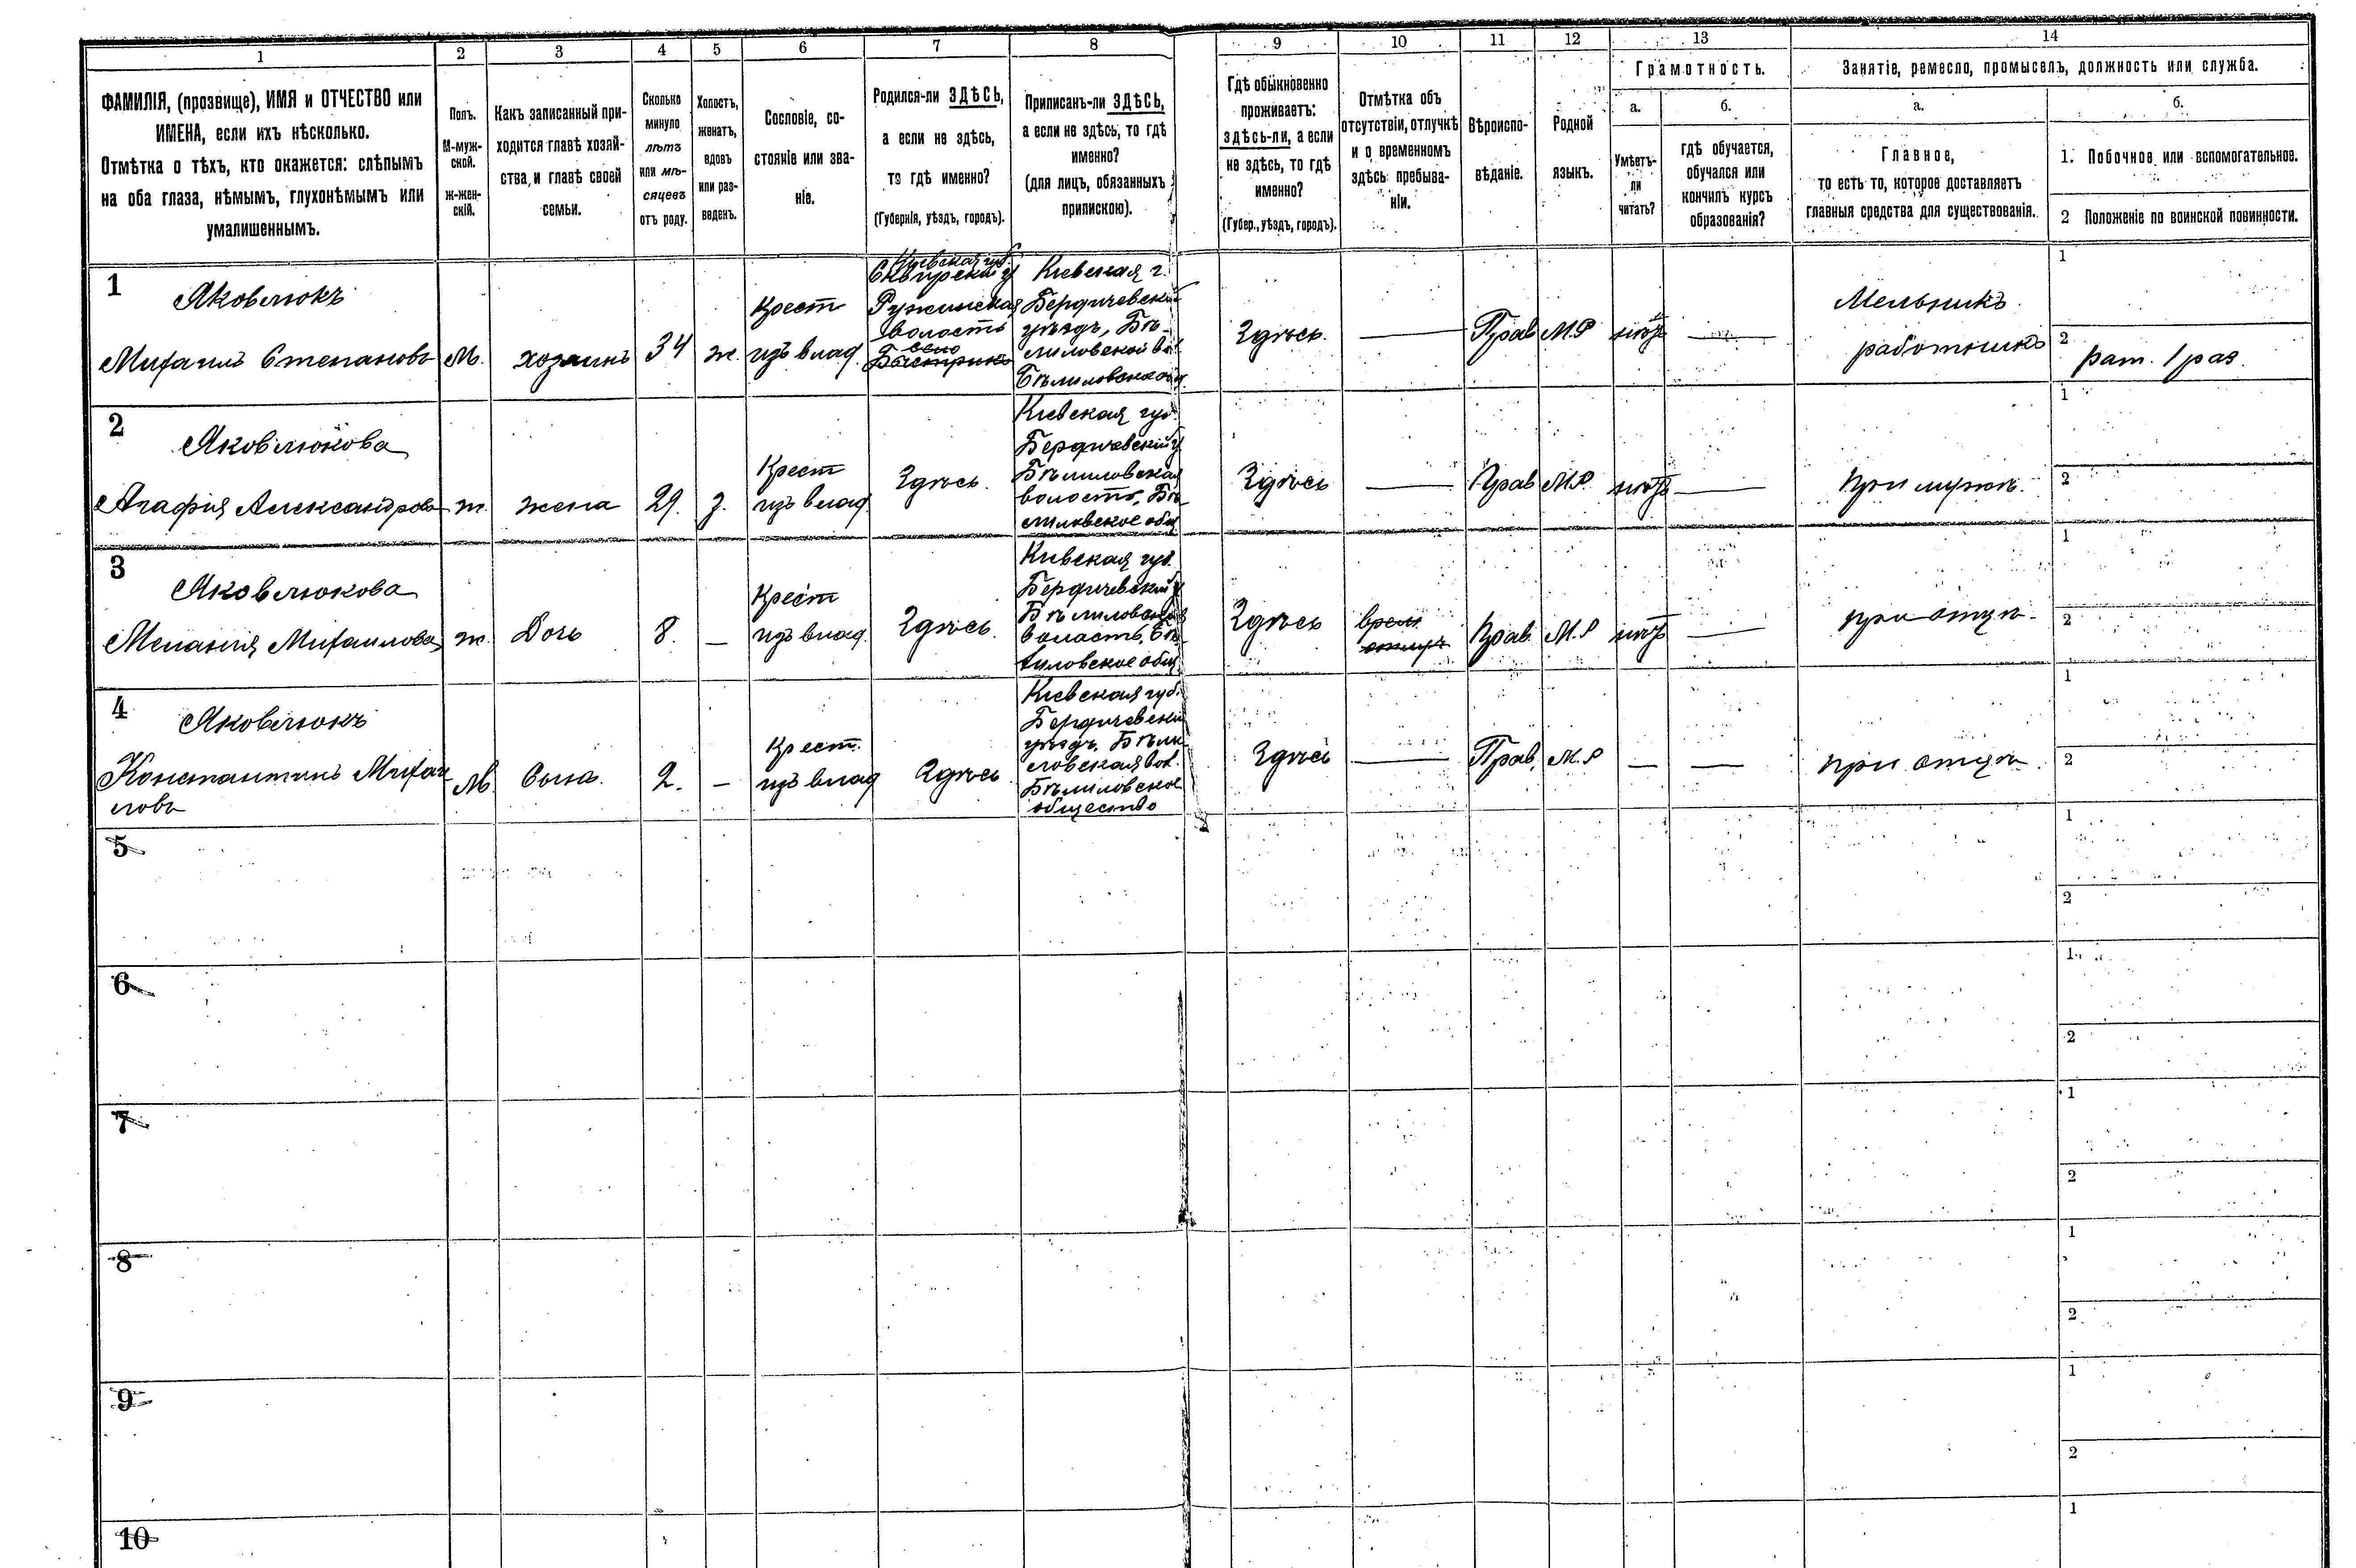 1 2 3 4 5 6 7 8 9 10 11 12 13 14
ФАМИЛІЯ, (прозвище), ИМЯ и ОТЧЕСТВО или
ИМЕНА, если ихъ нѣсколько.
Отмѣтка о тѣхъ, кто окажется: слѣпымъ
на оба глаза, нѣмымъ, глухонѣмымъ или
умалишеннымъ.
Полъ.
М-муж-
ской.
Ж-жен-
скій.
Какъ записанный при-
ходится главѣ хозяй-
ства, и главѣ своей
семьи.
Сколько
минуло
лѣтъ
или мѣ-
сяцевъ
отъ роду.
Холостъ,
женатъ,
вдовъ
или раз-
веденъ.
Сословіе, со-
стояніе или зва-
ніе.
Родился-ли ЗДѢСЬ,
а если не здѣсь,
то гдѣ именно?
(Губернія, уѣздъ, городъ).
Приписанъ-ли ЗДѢСЬ,
а если не здѣсь, то гдѣ
именно?
(для лицъ, обязанныхъ
припискою).
Гдѣ обыкновенно
проживаетъ:
здѣсь-ли, а если
не здѣсь, то гдѣ
именно?
(Губер., уѣздъ, городъ).
Отмѣтка объ
отсутствіи, отлучкѣ
и о временномъ
здѣсь пребыва-
ніи.
Вѣроиспо-
вѣданіе.
Родной
языкъ.
Грамотность.
а.
Умѣетъ-
ли
читать?
б.
гдѣ обучается,
обучался или
кончилъ курсъ
образованія?
Занятіе, ремесло, промыселъ, должность или служба.
а.
Главное,
то есть то, которое доставляетъ
главныя средства для существованія.
б.
1. Побочное или вспомогательное.
2 Положеніе по воинской повинности.
1
Яковлюкъ
Михаилъ Степановъ
М.
хозяинъ
34
ж.
Крест
изъ влад.
Кіевская губ.
Сквирскій у
Ружинская
волость
село
Кіевская г.
Бердичевскій
уѣздъ, Бѣ-
лиловской во
Бѣлиловское
Здѣсь.
Прав
М.Р
нѣтъ
Мельникъ
работникъ
1
2
рат. 1 раз.
2
Яковлюкова
Агафия Александрова
ж.
жена
29.
з.
Крест
изъ влад
Здѣсь.
Кіевская губ.
Бердичевскій у
Бѣлиловская
волость, Бѣ-
лиловское общ
Здѣсь
Прав
М.Р.
нѣтъ
При мужѣ.
1
2
3
Яковлюкова
Мелания Михаилова
ж.
Дочь
8.
—
Крест
изъ влад.
Здѣсь.
Кіевская губ.
Бердичевскій у
Бѣлиловская
волость, Бѣ-
лиловское общ
Здѣсь
Прав.
М.Р
нѣтъ
при отцѣ.
1
2
4
Яковлюкъ
Константинъ Михаи
ловъ
М.
Сынъ.
2.
—
Крест.
изъ влад
Здѣсь
Кіевская губ.
Бердичевскій
уѣздъ. Бѣли-
ловская вол.
Бѣлиловское
общество
Здѣсь
Прав.
М.Р
—
—
при отцѣ.
1
2
5
1
2
6
1
2
7
1
2
8
1
2
9
1
2
10
1